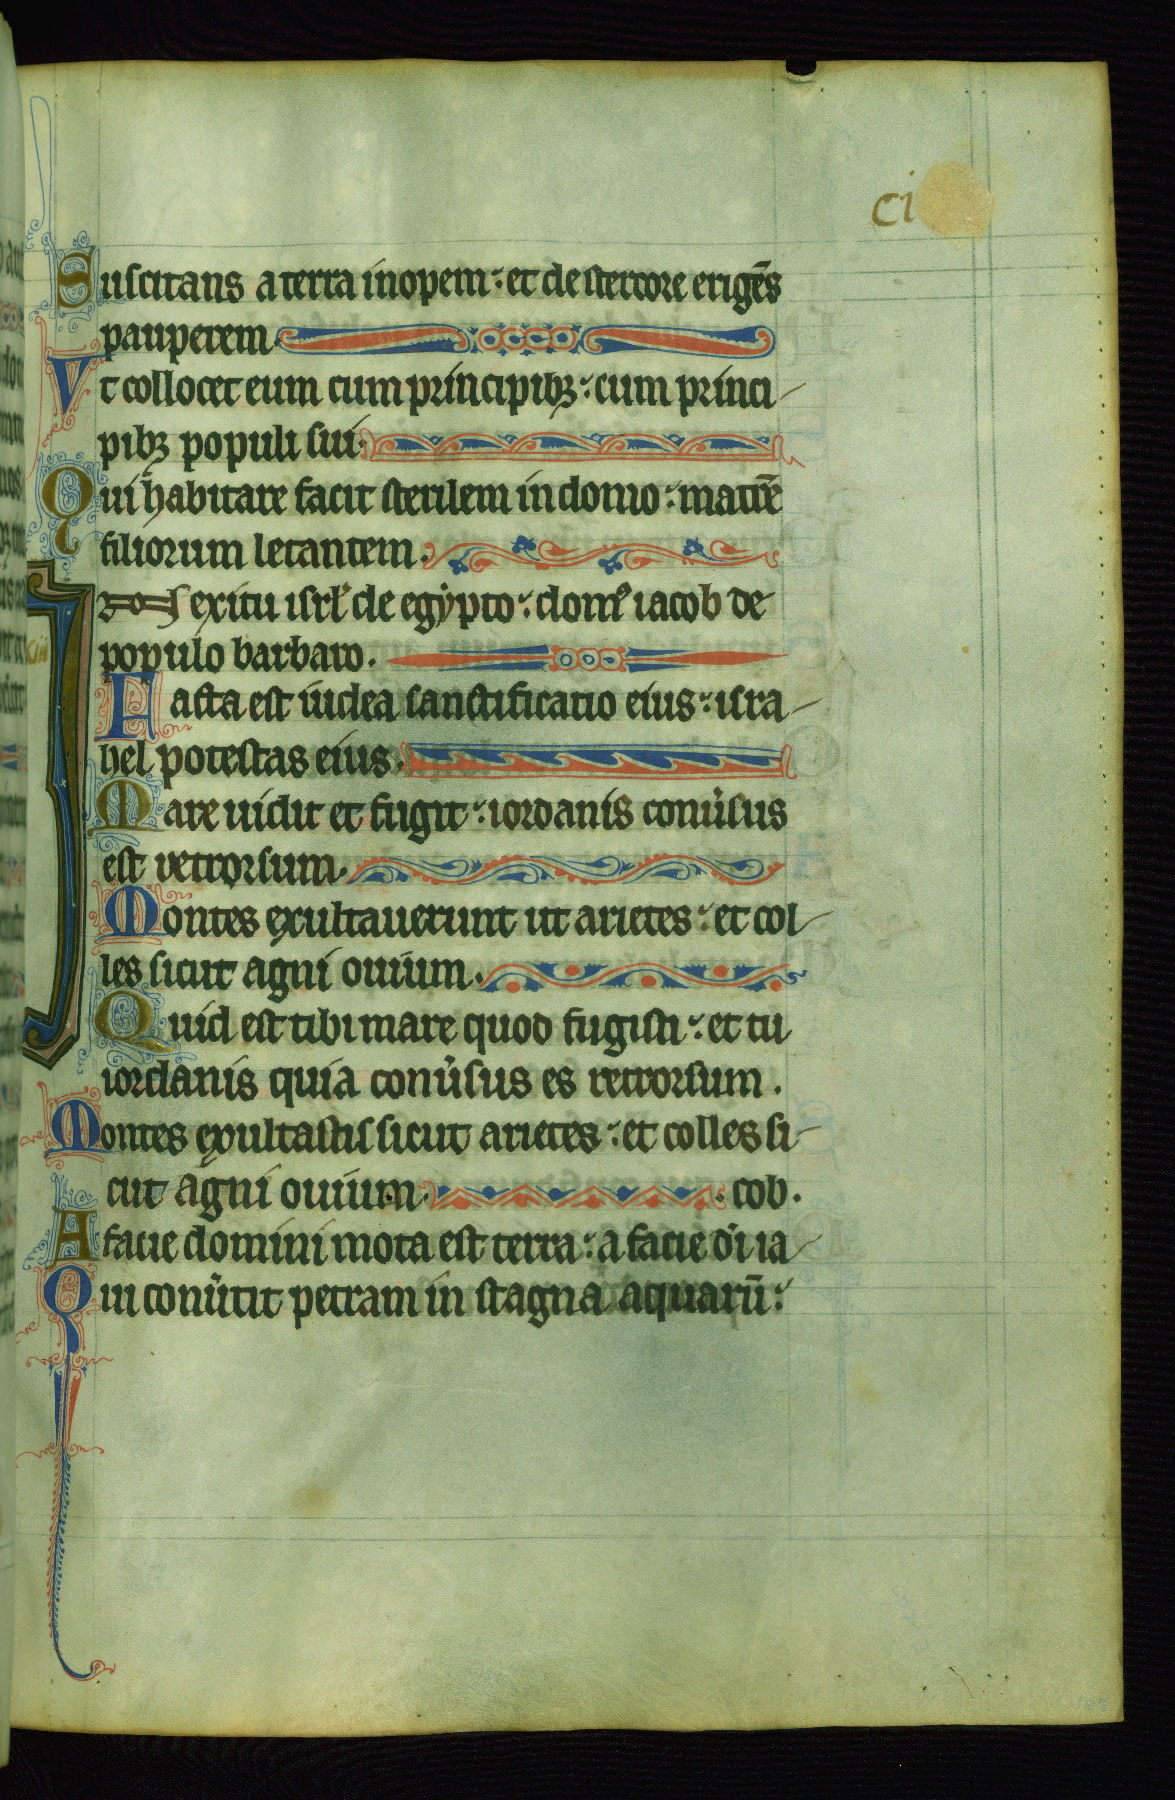 ci
Suscitans a terra inopem: et de stercore erigēs
pauperem
Vt collocet eum cum principibꝫ: cum princi-
pibꝫ populi sui:
Qui habitare facit sterilem in domo: matrē
filiorum letantem.
In exitu isrł de egẏpto: domꝰ iacob de
populo barbaro.
Facta est iudea sanctificatio eius: isra-
hel potestas eius.
Mare uidit et fugit: iordanis conu̾sus
est retrorsum.
Montes exultauerunt ut arietes: et col-
les sicut agni ouium.
Quid est tibi mare quod fugisti: et tu
iordanis quia conu̾sus es retrorsum.
Montes exultastis sicut arietes: et colles si-
cut agni ouium. cob.
A facie domini mota est terra: a facie di̅ ia-
Qui conu̾tit petram in stagna aquarū: